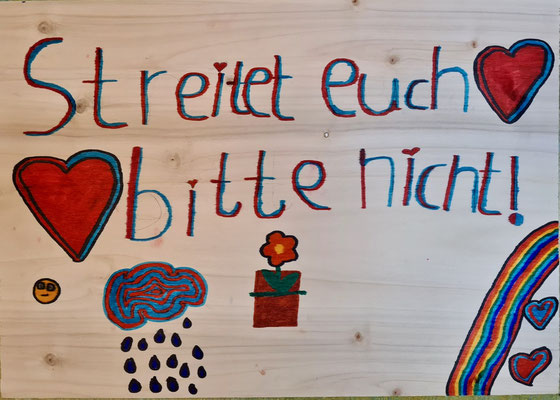 Streitet euch
bitte nicht!